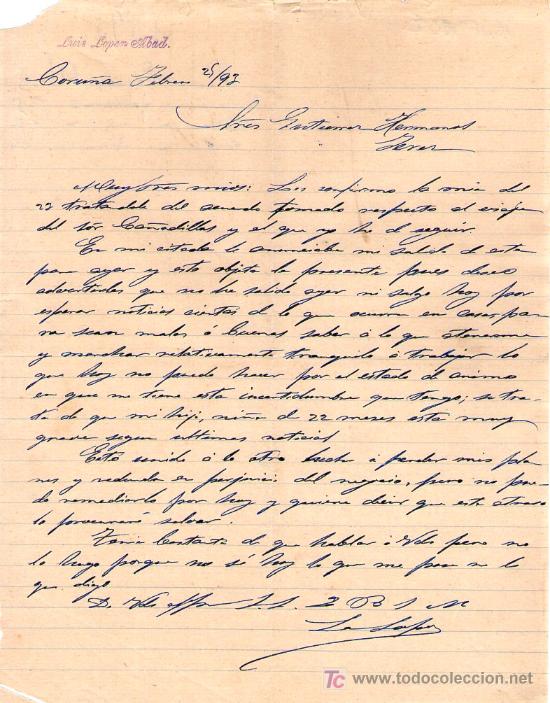 Luis Lopez Abad.
Coruña Febrero 25/93
Sres Gutierrez Hermanos
Jerez
Muy Sres mios: Les confirmo la mia del
22 tratandole del acuerdo tomado respecto al viaje
del Sor. Cañadillas y el que yo he de seguir.
En mi citada le anunciaba mi salida de esta
para ayer y esto objeta la presente pues deseo
advertirles que no he salido ayer ni salgo hoy por
esperar noticias ciertas de lo que ocurra en casa, pa
ra sean malas ó buenas saber á lo que atenerme
y marchar relativamente tranquilo á trabajar lo
que hoy no puedo hacer por el estado de animo
en que me tiene esta incertidumbre que tengo; se tra-
ta de que mi hija, niña de 22 meses esta muy
grave segun ultimas noticias
Esto unido á lo otro hecha á perder mis pla
nes y redunda en perjuicio del negocio, pero no pue
do remediarlo por hoy y quiere decir que este atraso
lo procuraré salvar.
Tanta de que hablar á Vds pero no
lo hago porque no sé hoy lo que me pasa ni lo
que digo
D. Vds affmo S. S. Q B S M
L Lopez
TC www.todocoleccion.net